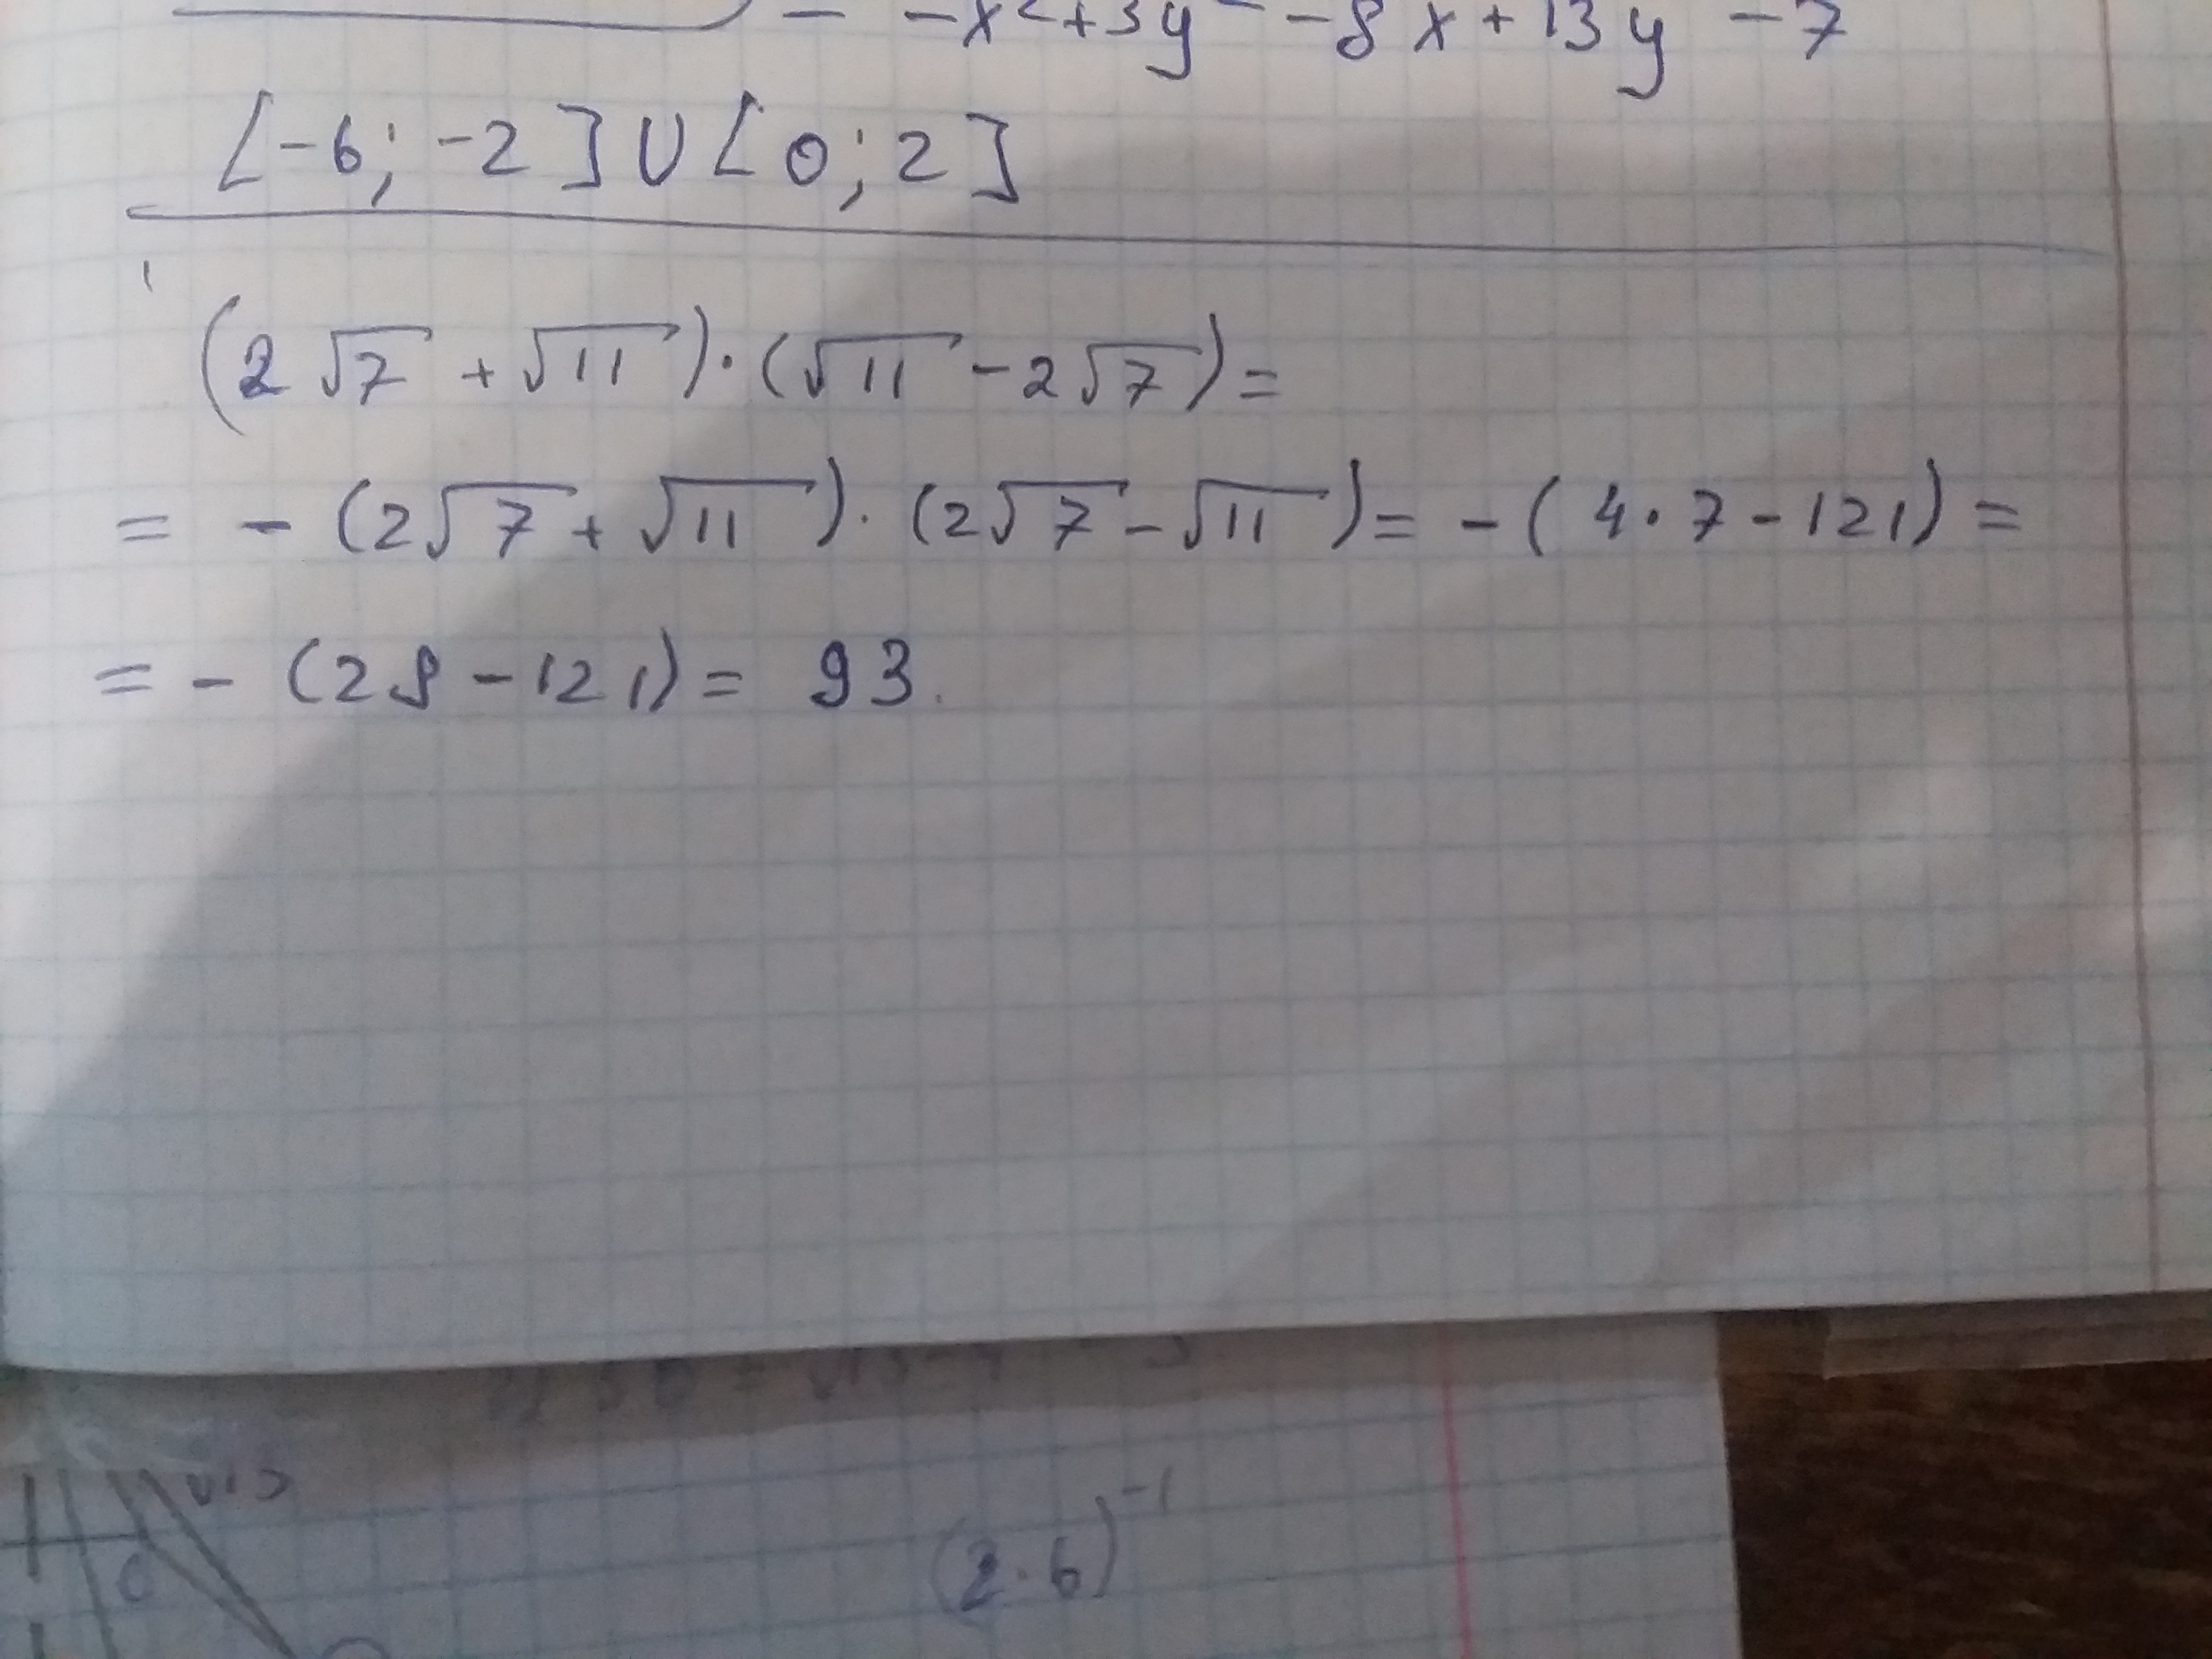 - -x²+3y² -8x+13y -7
[-6; -2]U[0; 2]
(2√7 + √11)·(√11 - 2√7)=
= - (2√7 + √11)·(2√7 - √11)= -(4·7-121)=
= - (28-121)= 93.
(2·6)⁻¹